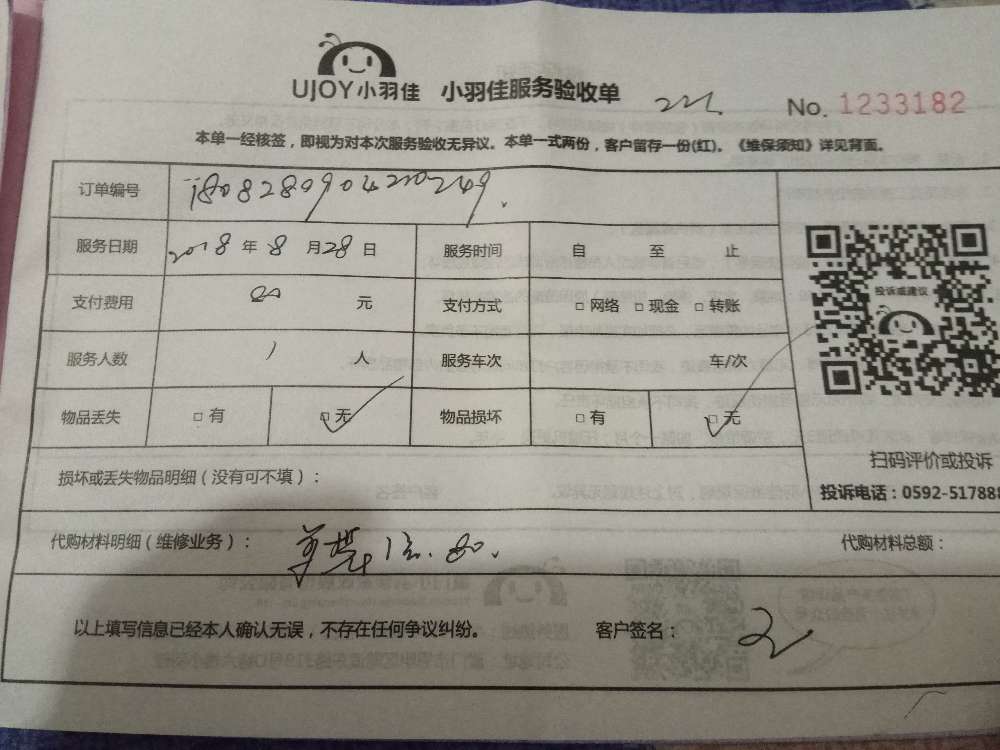 UJOY小羽佳 小羽佳服务验收单 No. 1233182
本单一经核签，即视为对本次服务验收无异议。本单一式两份，客户留存一份(红)。《维保须知》详见背面。
订单编号
服务日期 2018 年 8 月 28 日 服务时间 自 至 止
支付费用 80 元 支付方式 □ 网络 □ 现金 □ 转账
服务人数 1 人 服务车次 车/次
物品丢失 □ 有 □ 无 物品损坏 □ 有 □ 无
投诉或建议
扫码评价或投诉
投诉电话：0592-517888
损坏或丢失物品明细（没有可不填）：
代购材料明细（维修业务）： 80. 代购材料总额：
以上填写信息已经本人确认无误，不存在任何争议纠纷。 客户签名：